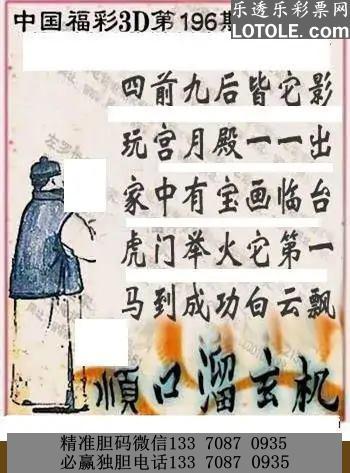 中国福彩3D第196期
乐透乐彩票网
LOTOLE.COM
四前九后皆它影
玩宫月殿一一出
家中有宝画临台
虎门举火它第一
马到成功白云飘
顺口溜玄机
精准胆码微信133 7087 0935
必赢独胆电话133 7087 0935